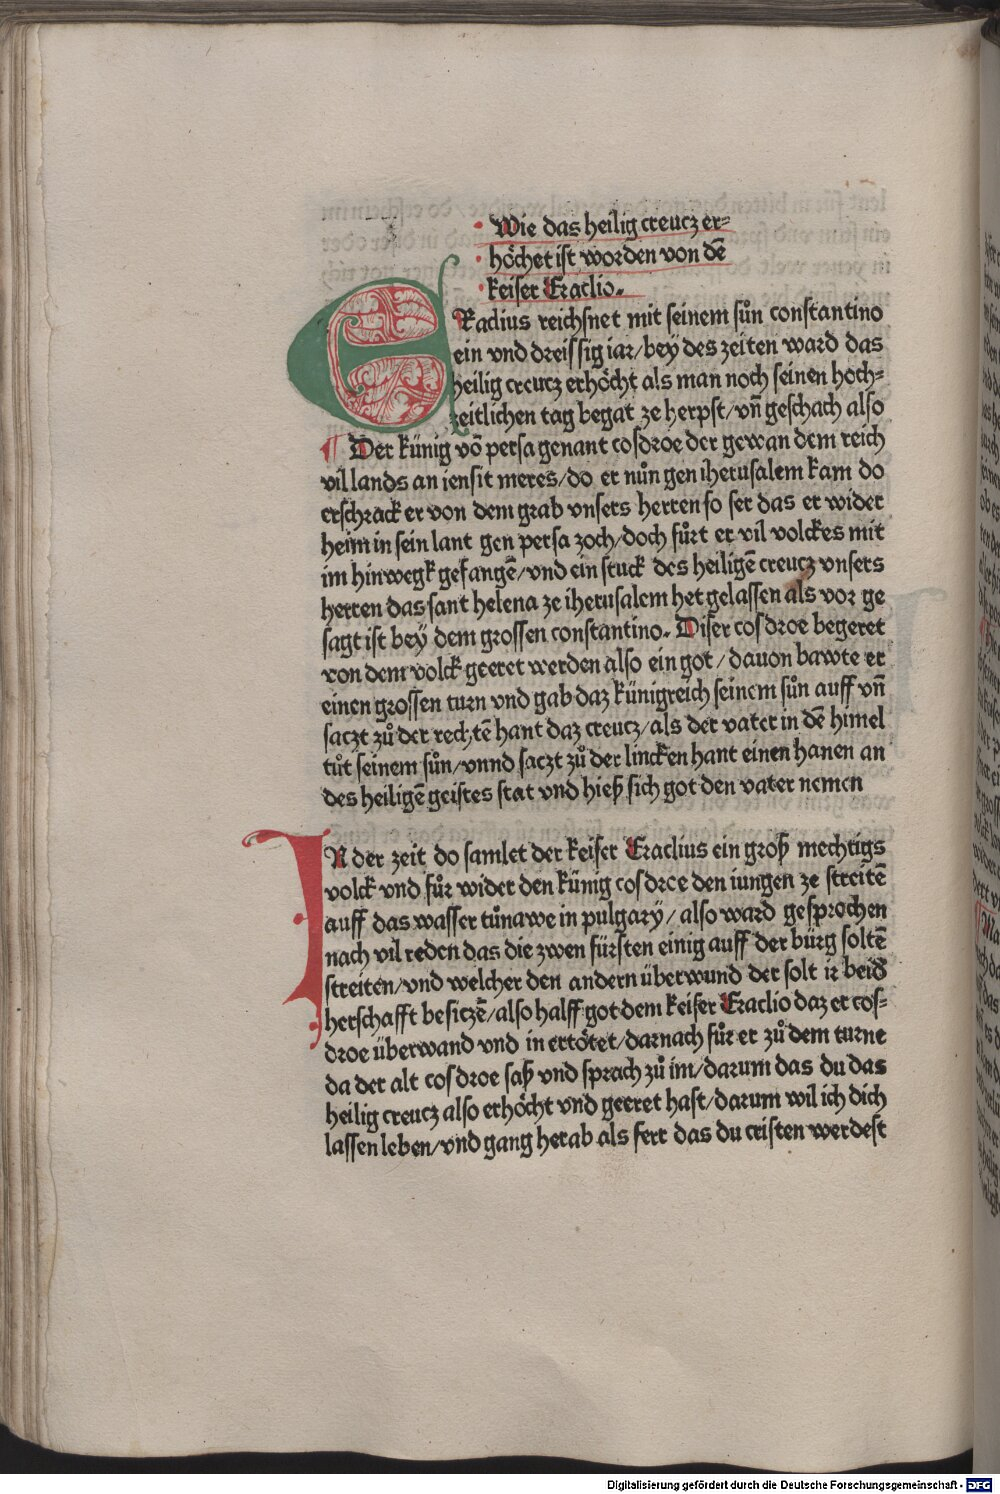 Wie das heilig creucz er⸗
höchet ist worden von dē
keiser Eraclio.
ERadius reichſnet mit ſeinem ſůn conſtantino
ein vnd dreiſſig iar/bey des zeiten ward das
heilig creucz erhöcht als man noch ſeinen hoch⸗
zeitlichen tag begat ze herpſt/vn̄ geſchach alſo
¶ Der künig vō perſa genant coſdroe der gewan dem reich
vil lands an ienſit meres/do er nůn gen iheruſalem kam do
erſchrack er von dem grab vnſers herren ſo ſer das er wider
heim in ſein lant gen perſa zoch/doch fůrt er vil volckes mit
im hinwegk gefangē/vnd ein ſtuck des heiligē creucz vnſers
herren das ſant helena ze iheruſalem het gelaſſen als vor ge
ſagt iſt bey dem groſſen conſtantino. Diſer coſdroe begeret
von dem volck geeret werden alſo ein got/dauon bawte er
einen groſſen turn vnd gab daz künigreich ſeinem ſůn auff vn̄
ſaczt zů der rechtē hant daz creucz/als der vater in dē himel
tůt ſeinem ſůn/vnnd ſaczt zů der lincken hant einen hanen an
des heiligē geiſtes ſtat vnd hieß ſich got den vater nemen
IN der zeit do ſamlet der keiſer Eraclius ein groß mechtigs
volck vnd fůr wider den künig coſdroe den iungen ze ſtreitē
auff das waſſer tůnawe in pulgary/alſo ward geſprochen
nach vil reden das die zwen fürſten einig auff der bürg ſoltē
ſtreiten/vnd welcher den andern überwund der ſolt ir beid
herſchafft beſiczē/alſo halff got dem keiſer Eraclio daz er coſ⸗
droe überwand vnd in ertötet/darnach fůr er zů dem turne
da der alt coſdroe ſaß vnd ſprach zů im/darum das du das
heilig creucz alſo erhöcht vnd geeret haſt/darum wil ich dich
laſſen leben/vnd gang herab als ferr das du criſten werdeſt
Digitalisierung gefördert durch die Deutsche Forschungsgemeinschaft - DFG